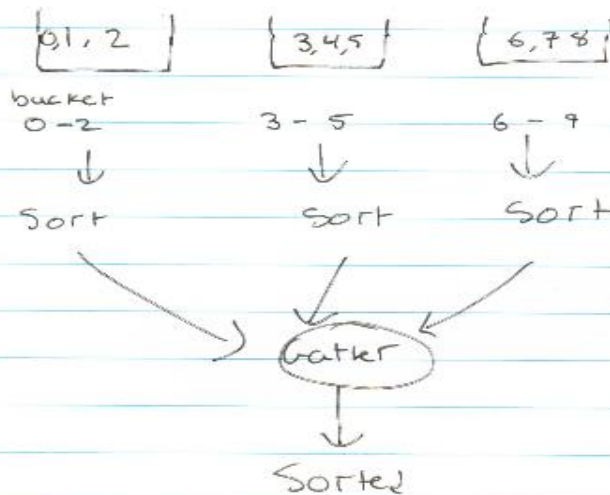 0,1,2 3,4,5 6,7 8
bucket
0-2 3-5 6-9
Sort Sort Sort
Gather
Sorted